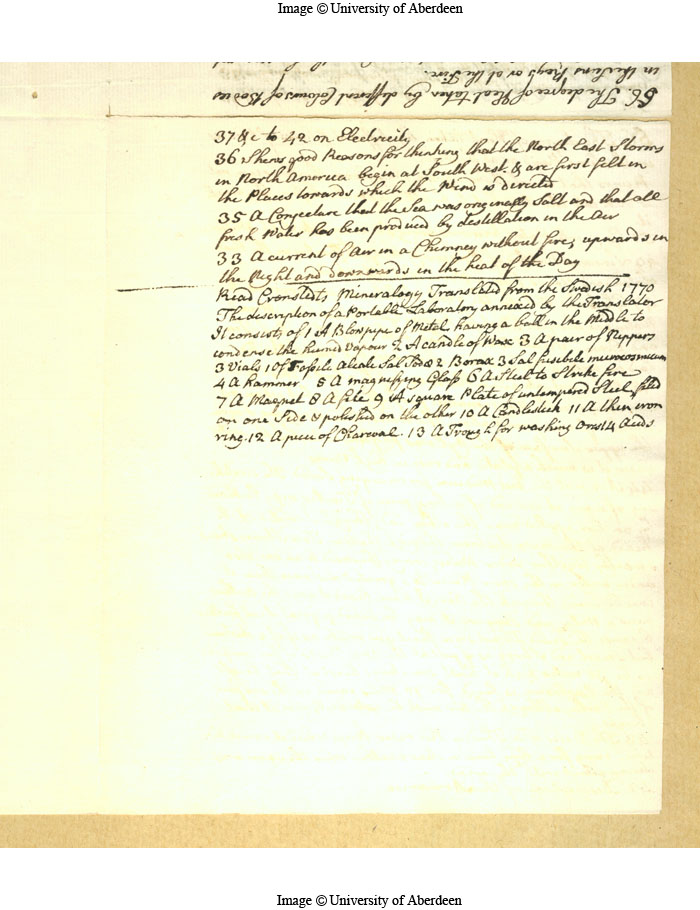 Image © University of Aberdeen
56. The degree of Heat taken by different Colours of Bodies
in the Suns Rays or at the Fire.
37 &c to 42 on Electricity
36 Shews good Reasons for thinking that the North East Storms
in North America begin at South West & are first felt in
the Places towards which the Wind is directed
35 A Conjecture that the Sea was originally Salt and that all
fresh Water has been produced by destillation in the Air
33 A current of Air in a Chimney without fire, upwards in
the Night and downwards in the heat of the Day
Read Cronstedts Mineralogy Translated from the Swedish 1770
The description of a Portable Laboratory annexed by the Translator
It consists of 1 A Blowpipe of Metal having a ball in the Middle to
condense the humid Vapour 2 A candle of Wax 3 A pair of Nippers
3 Vials 1 Of Fossile Alcale Sal Sodæ 2 Borax 3 Sal fusibile microcosmicum
4 A hammer 5 A magnifying Glass 6 A Steel to Strike fire
7 A Magnet 8 A file 9 A square Plate of untempered Steel filed
on one Side & polished on the other 10 A Candlestick 11 A thin iron
ring. 12 A piece of Charcoal. 13 A Trough for washing Ores 14 Acids
Image © University of Aberdeen